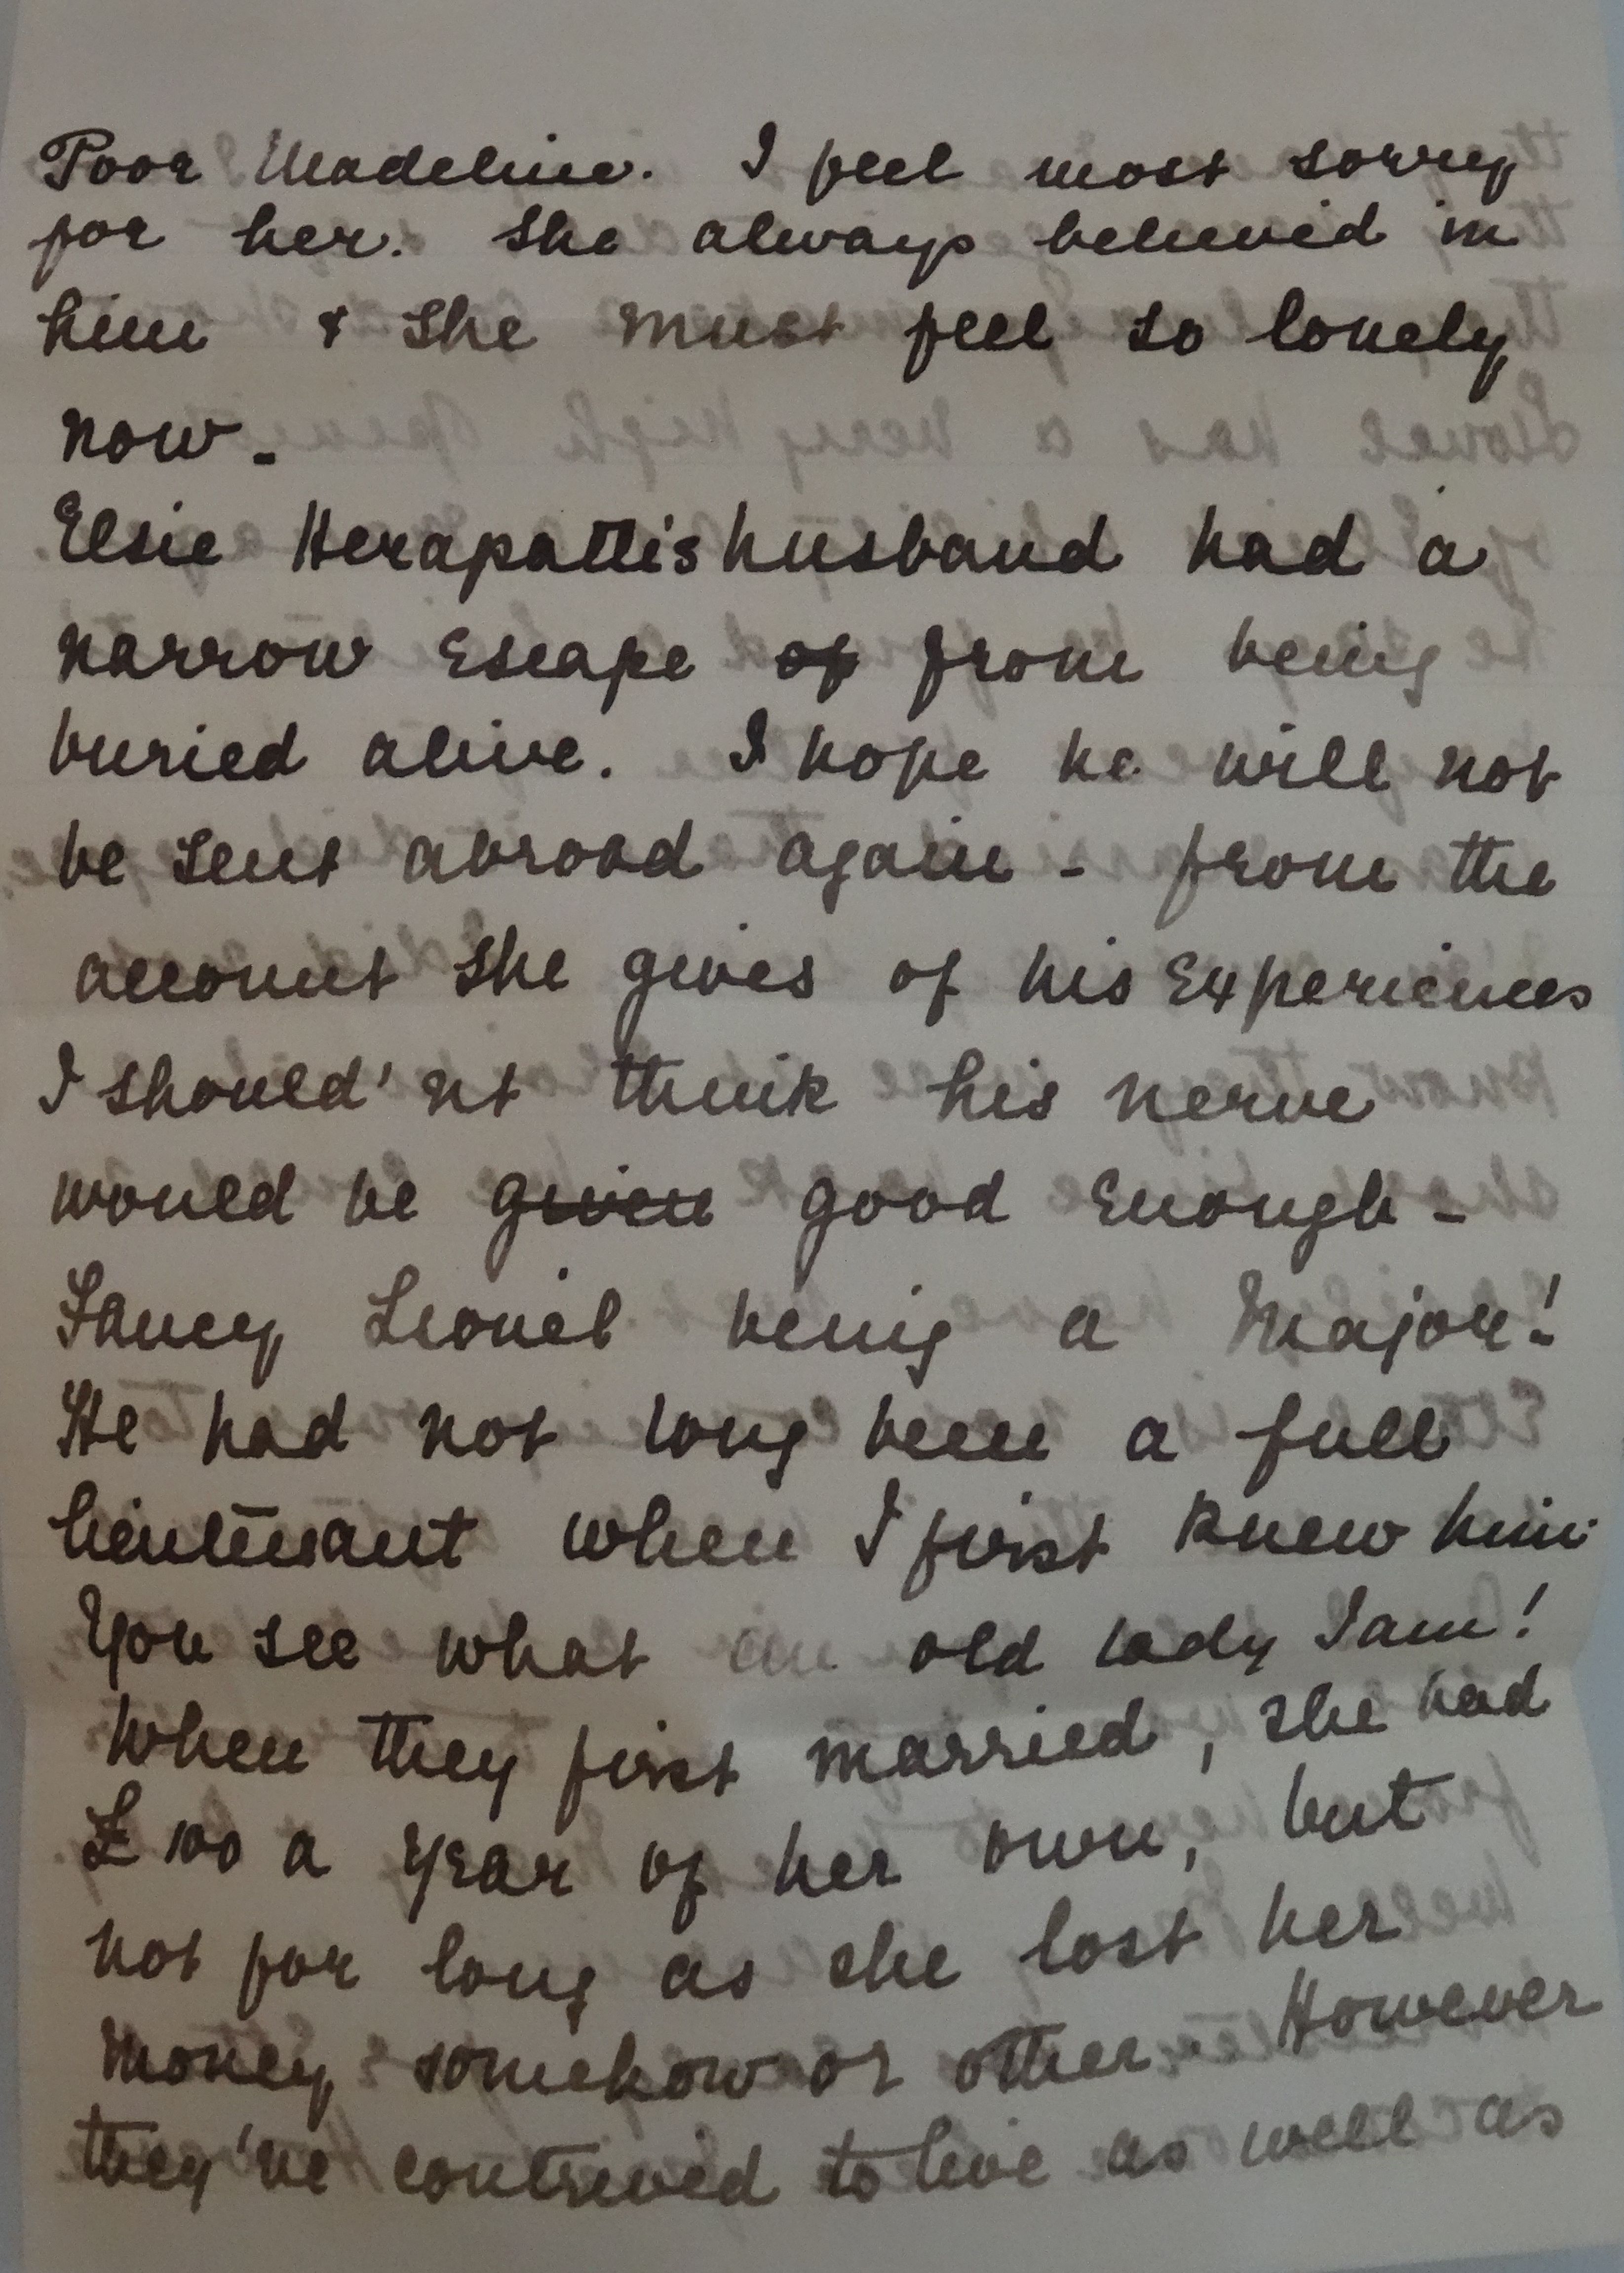 Poor Madeline. I feel most sorry
for her. She always believed in
him & she must feel so lonely
now -
Elsie Herapath's husband had a
narrow escape of from being
buried alive. I hope he will not
be sent abroad again - from the
account she gives of his experiences
I should'nt think his nerve
would be given good enough -
Fancy Lionel being a Major!
He had not long been a full
lieutenant when I first knew him.
You see what an old lady I am!
When they first married, she had
£100 a year of her own, but
not for long as she lost her
money somehow or other. However
they've contrived to live as well as